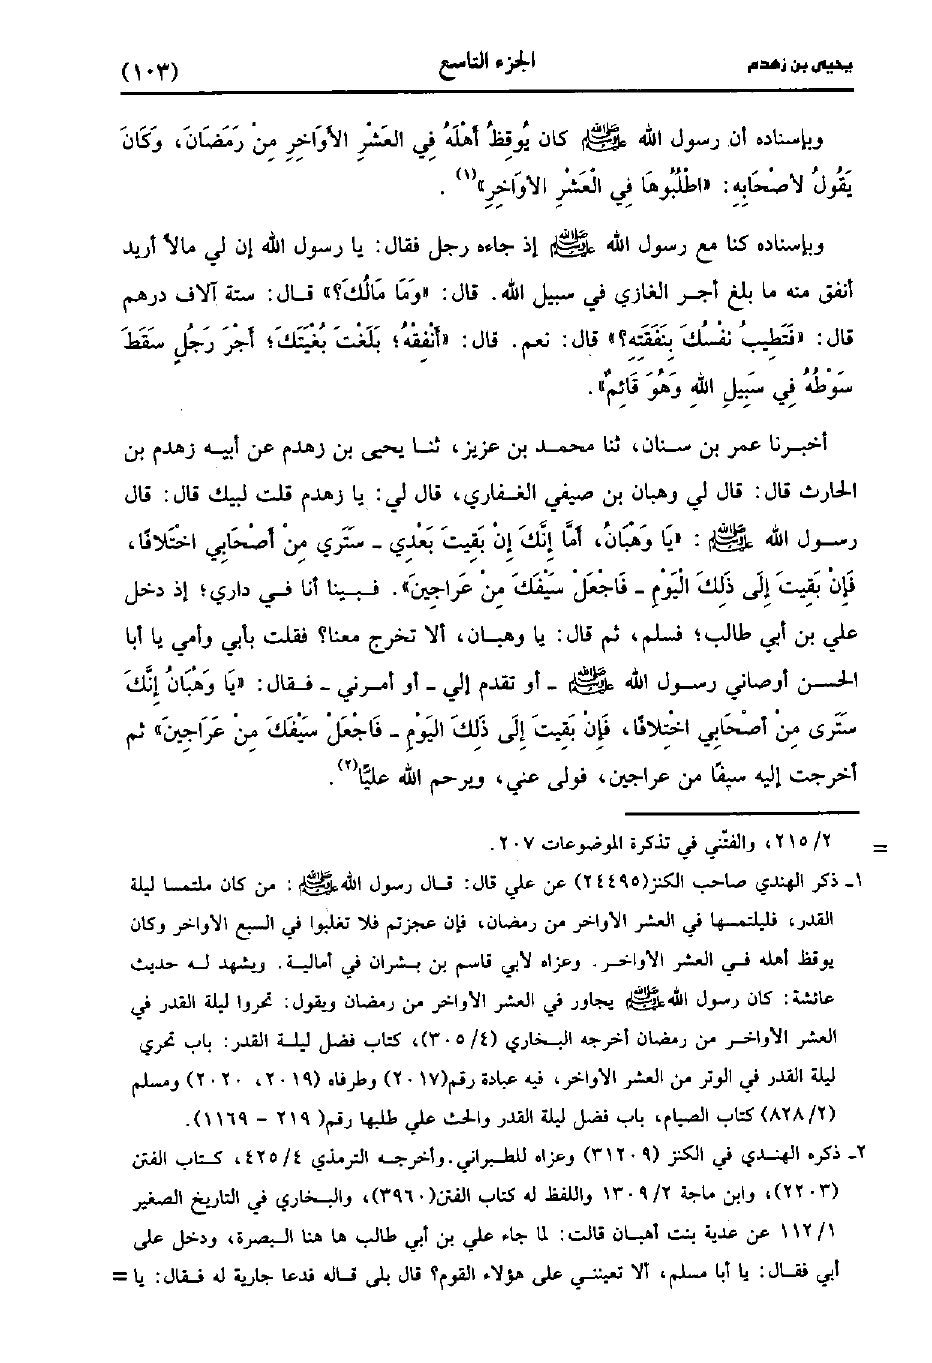 يحيى بن زهدم الجزء التاسع (١٠٣)
وبإسناده أن رسول الله ﷺ كان يُوقِظُ أَهْلَهُ فِي العَشْرِ الأَوَاخِرِ مِنْ رَمَضَانَ، وَكَانَ
يَقُولُ لأَصْحَابِهِ: «اطْلُبُوهَا فِي الْعَشْرِ الأَوَاخِرِ»(١).
وبإسناده كنا مع رسول الله ﷺ إذ جاءه رجل فقال: يا رسول الله إن لي مالاً أريد
أنفق منه ما بلغ أجر الغازي في سبيل الله. قال: «وَمَا مَالُكَ؟» قال: ستة آلاف درهم
قال: «فَتَطِيبُ نَفْسُكَ بِنَفَقَتِهِ؟» قال: نعم. قال: «أَنْفِقْهُ؛ بَلَغْتَ بُغْيَتَكَ؛ أَجْرَ رَجُلٍ سَقَطَ
سَوْطُهُ فِي سَبِيلِ اللهِ وَهُوَ قَائِمٌ».
أخبرنا عمر بن سنان، ثنا محمد بن عزيز، ثنا يحيى بن زهدم عن أبيه زهدم بن
الحارث قال: قال لي وهبان بن صيفي الغفاري، قال لي: يا زهدم قلت لبيك قال: قال
رسول الله ﷺ: «يَا وَهْبَانُ، أَمَّا إِنَّكَ إِنْ بَقِيتَ بَعْدِي ـ سَتَرَي مِنْ أَصْحَابِي اخْتِلَافًا،
فَإِنْ بَقِيتَ إِلَى ذَلِكَ الْيَوْمِ ـ فَاجْعَلْ سَيْفَكَ مِنْ عَرَاجِينَ». فبينا أنا في داري؛ إذ دخل
علي بن أبي طالب؛ فسلم، ثم قال: يا وهبان، ألا تخرج معنا؟ فقلت بأبي وأمي يا أبا
الحسن أوصاني رسول الله ﷺ ـ أو تقدم إلي ـ أو أمرني ـ فقال: «يَا وَهْبَانُ إِنَّكَ
سَتَرَى مِنْ أَصْحَابِي اخْتِلَافًا، فَإِنْ بَقِيتَ إِلَى ذَلِكَ الْيَوْمِ ـ فَاجْعَلْ سَيْفَكَ مِنْ عَرَاجِينَ» ثم
أخرجت إليه سيفًا من عراجين، فولى عني، ويرحم الله عليًّا(٢).
= ٢/ ٢١٥، والفتّني في تذكرة الموضوعات ٢٠٧.
١ـ ذكر الهندي صاحب الكنز(٢٤٤٩٥) عن علي قال: قال رسول الله ﷺ: من كان ملتمسا ليلة
القدر، فليلتمسها في العشر الأواخر من رمضان، فإن عجزتم فلا تغلبوا في السبع الأواخر وكان
يوقظ أهله في العشر الأواخر. وعزاه لأبي قاسم بن بشران في أمالية. ويشهد له حديث
عائشة: كان رسول الله ﷺ يجاور في العشر الأواخر من رمضان ويقول: تحروا ليلة القدر في
العشر الأواخر من رمضان أخرجه البخاري (٤/ ٣٠٥)، كتاب فضل ليلة القدر: باب تحري
ليلة القدر في الوتر من العشر الأواخر، فيه عبادة رقم(٢٠١٧) وطرفاه (٢٠١٩، ٢٠٢٠) ومسلم
(٢/ ٨٢٨) كتاب الصيام، باب فضل ليلة القدر والحث علي طلبها رقم( ٢١٩ - ١١٦٩).
٢ـ ذكره الهندي في الكنز (٣١٢٠٩) وعزاه للطبراني. وأخرجه الترمذي ٤/ ٤٢٥، كتاب الفتن
(٢٢٠٣)، وابن ماجة ٢/ ١٣٠٩ واللفظ له كتاب الفتن(٣٩٦٠)، والبخاري في التاريخ الصغير
١/ ١١٢ عن عدية بنت أهبان قالت: لما جاء علي بن أبي طالب ها هنا البصرة، ودخل على
أبي فقال: يا أبا مسلم، ألا تعينني على هؤلاء القوم؟ قال بلى قاله فدعا جارية له فقال: يا =